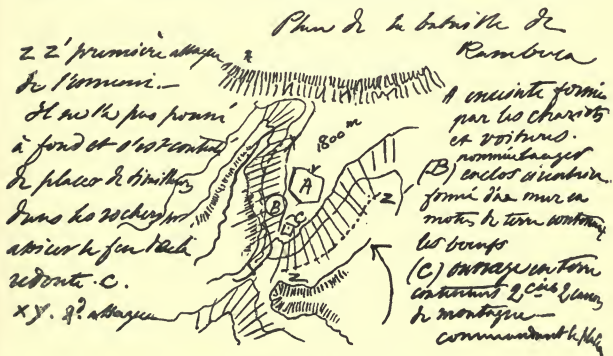 Plan de la bataille de
Rambuca
z z' première attaque
de l'ennemi.—
Il ne l'a pas poussé
à fond et s'est contenté
de placer des
dans les rochers pour
le feu de la
redoute. C.
x y. 2e attaque
1800 m
A
B
C
z
z
x
A enceinte formée
par les chariots
et voitures.
(B) enclos circulaire
formé d'un mur en
mottes de terre contenant
les boeufs
(C) ouvrage en terre
contenant 2 2 canons
de montagne—
commandant le